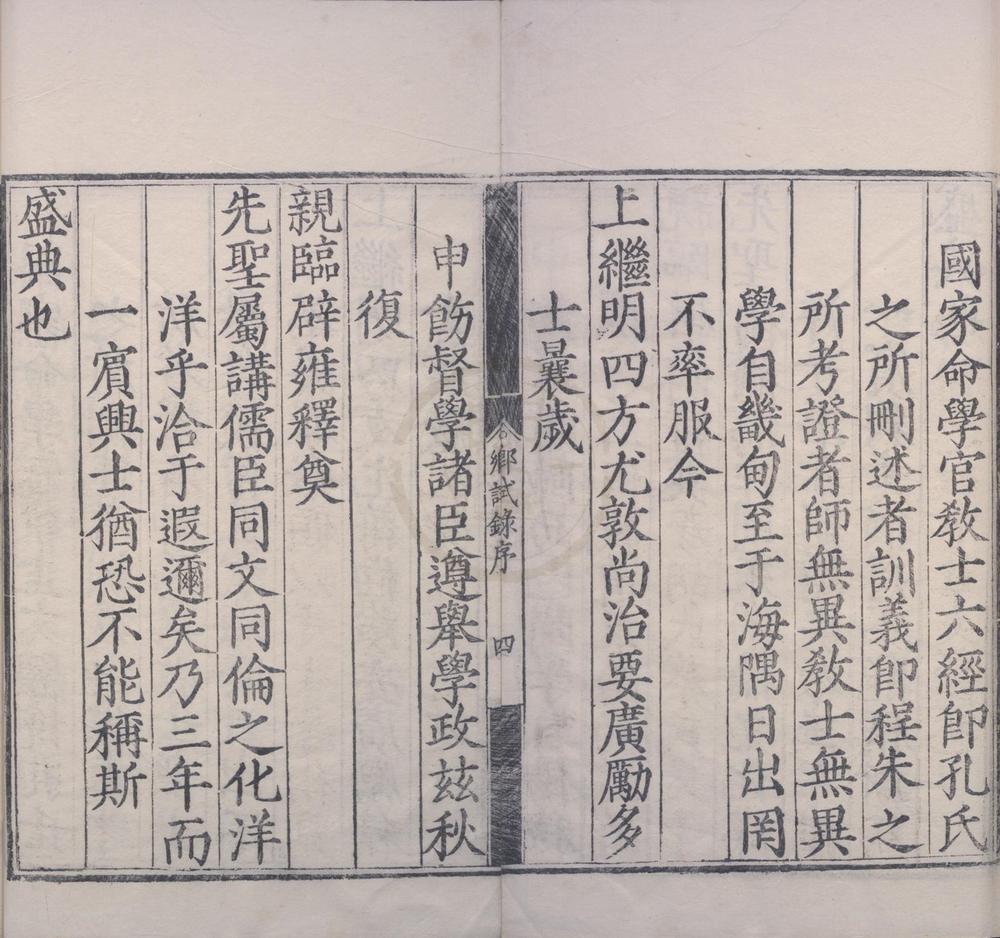 國家命學官教士六經卽孔氏
之所刪述者訓義卽程朱之
所考證者師無異教士無異
學自畿甸至于海隅日出罔
不率服今
上繼明四方尤敦尚治要廣勵多
士曩歲
鄉試錄序
四
申飭督學諸臣遵舉學政茲秋
復
親臨辟雍釋奠
先聖屬講儒臣同文同倫之化洋
洋乎洽于遐邇矣乃三年而
一賓興士猶恐不能稱斯
盛典也